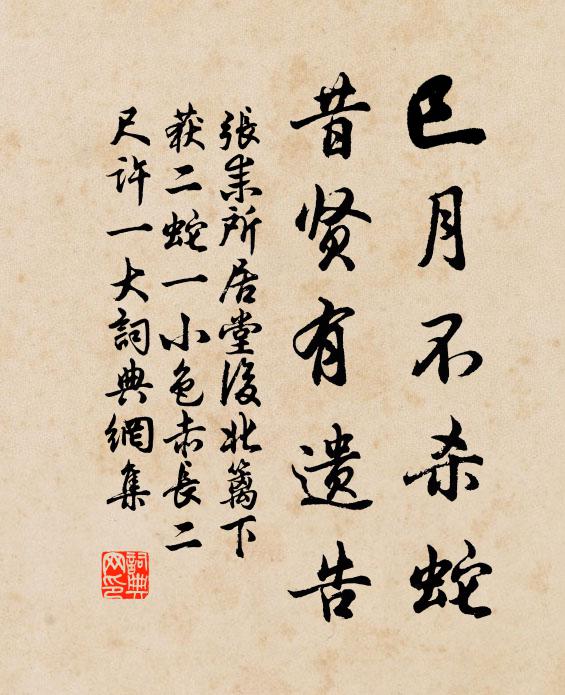 巳月不杀蛇
昔贤有遗告
張耒所居堂後北篱下
获二蛇一小色赤長二
尺许一大詞典網集
詞典
网印